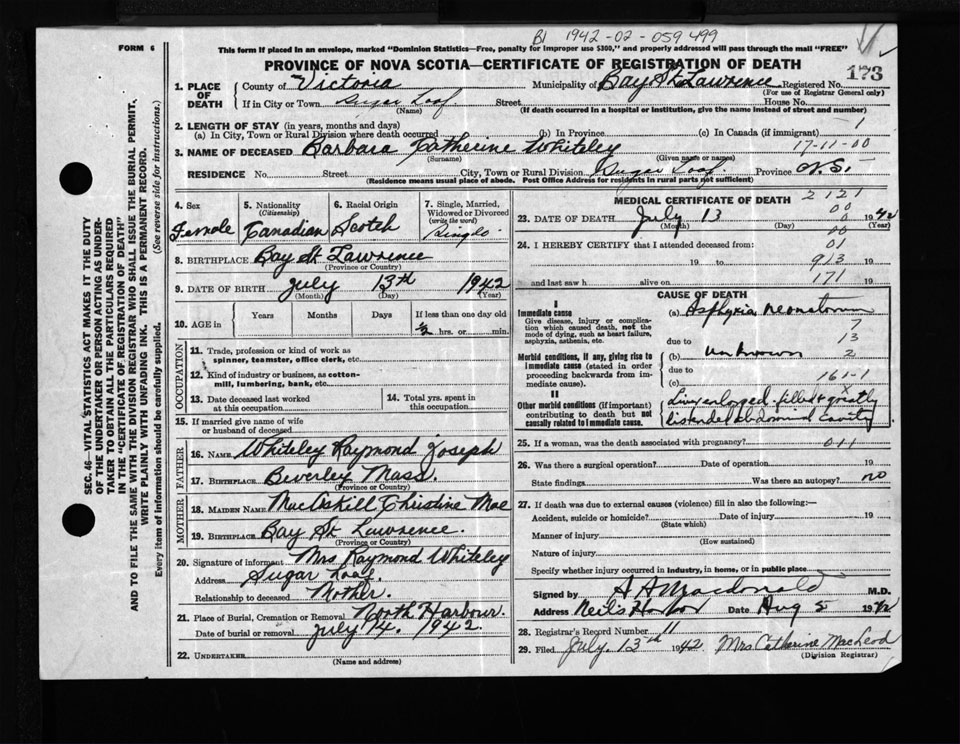 B1 1942-02-059499
FORM 6
This form if placed in an envelope, marked "Dominion Statistics—Free, penalty for improper use $300," and properly addressed will pass through the mail "FREE"
PROVINCE OF NOVA SCOTIA—CERTIFICATE OF REGISTRATION OF DEATH
173
1. PLACE OF DEATH
County of Victoria Municipality of Bay St. Lawrence Registered No.
(For use of Registrar General only)
If in City or Town Sugar Loaf Street House No.
(Name) (If death occurred in a hospital or institution, give the name instead of street and number)
2. LENGTH OF STAY (in years, months and days)
(a) In City, Town or Rural Division where death occurred (b) In Province (c) In Canada (if immigrant) 1
3. NAME OF DECEASED Barbara Catherine Whiteley 17-11-00
(Surname) (Given name or names)
RESIDENCE No. Street City, Town or Rural Division Sugar Loaf Province N.S.
(Residence means usual place of abode. Post Office Address for residents in rural parts not sufficient)
4. Sex Female
5. Nationality (Citizenship) Canadian
6. Racial Origin Scotch
7. Single, Married, Widowed or Divorced (write the word) Single
8. BIRTHPLACE Bay St Lawrence
(Province or Country)
9. DATE OF BIRTH July 13th 1942
(Month) (Day) (Year)
10. AGE in Years Months Days If less than one day old
½ hrs. or min.
OCCUPATION
11. Trade, profession or kind of work as spinner, teamster, office clerk, etc.
12. Kind of industry or business, as cotton-mill, lumbering, bank, etc.
13. Date deceased last worked at this occupation
14. Total yrs. spent in this occupation
15. If married give name of wife or husband of deceased
FATHER
16. NAME Whiteley Raymond Joseph
17. BIRTHPLACE Beverley Mass.
(Province or Country)
MOTHER
18. MAIDEN NAME MacAskill Christine Mae
19. BIRTHPLACE Bay St Lawrence.
(Province or Country)
20. Signature of informant Mrs Raymond Whiteley
Address Sugar Loaf.
Relationship to deceased Mother.
21. Place of Burial, Cremation or Removal North Harbour.
Date of burial or removal July 14. 1942.
22. UNDERTAKER
(Name and address)
MEDICAL CERTIFICATE OF DEATH 2121
00
23. DATE OF DEATH July 13 0 1942
(Month) (Day) (Year)
00
24. I HEREBY CERTIFY that I attended deceased from: 01
19 to 913 19
and last saw h alive on 171 19
CAUSE OF DEATH
I
Immediate cause
Give disease, injury or complication which caused death, not the mode of dying, such as heart failure, asphyxia, asthenia, etc.
(a) Asphyxia neonatorum
7
due to 13
Morbid conditions, if any, giving rise to immediate cause (stated in order proceeding backwards from immediate cause).
(b) unknown 2
due to
(c) 161-1
x
II
Other morbid conditions (if important) contributing to death but not causally related to immediate cause.
Liver enlarged - filled & greatly
distended abdominal cavity
25. If a woman, was the death associated with pregnancy? 011
26. Was there a surgical operation? Date of operation 19
State findings Was there an autopsy? no
27. If death was due to external causes (violence) fill in also the following:—
Accident, suicide or homicide? Date of injury 19
(State which)
Manner of injury
(How sustained)
Nature of injury
Specify whether injury occurred in industry, in home, or in public place
Signed by A A Macdonald M.D.
Address Neil's Harbor Date Aug 5 1942
28. Registrar's Record Number 11
29. Filed July. 13th 1942 Mrs. Catherine MacLeod
(Division Registrar)
SEC. 46—VITAL STATISTICS ACT MAKES IT THE DUTY
OF THE UNDERTAKER OR PERSON ACTING AS UNDER-
TAKER TO OBTAIN ALL THE PARTICULARS REQUIRED
IN THE "CERTIFICATE OF REGISTRATION OF DEATH"
AND TO FILE THE SAME WITH THE DIVISION REGISTRAR WHO SHALL ISSUE THE BURIAL PERMIT.
WRITE PLAINLY WITH UNFADING INK. THIS IS A PERMANENT RECORD.
Every item of information should be carefully supplied. (See reverse side for instructions.)